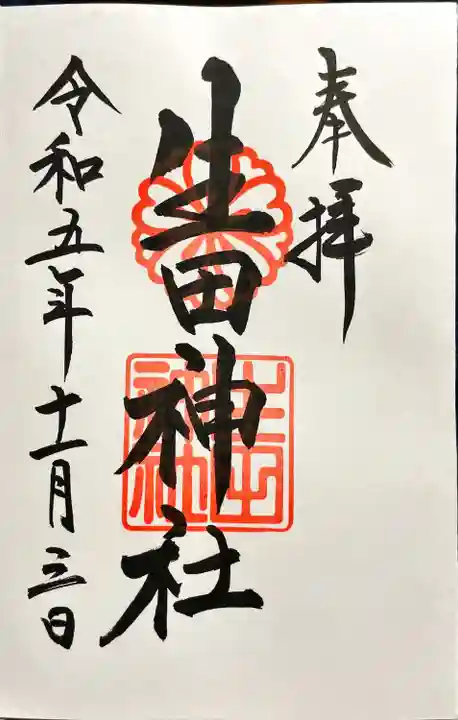 奉拝
生田神社
令和五年十一月三日
生田神社